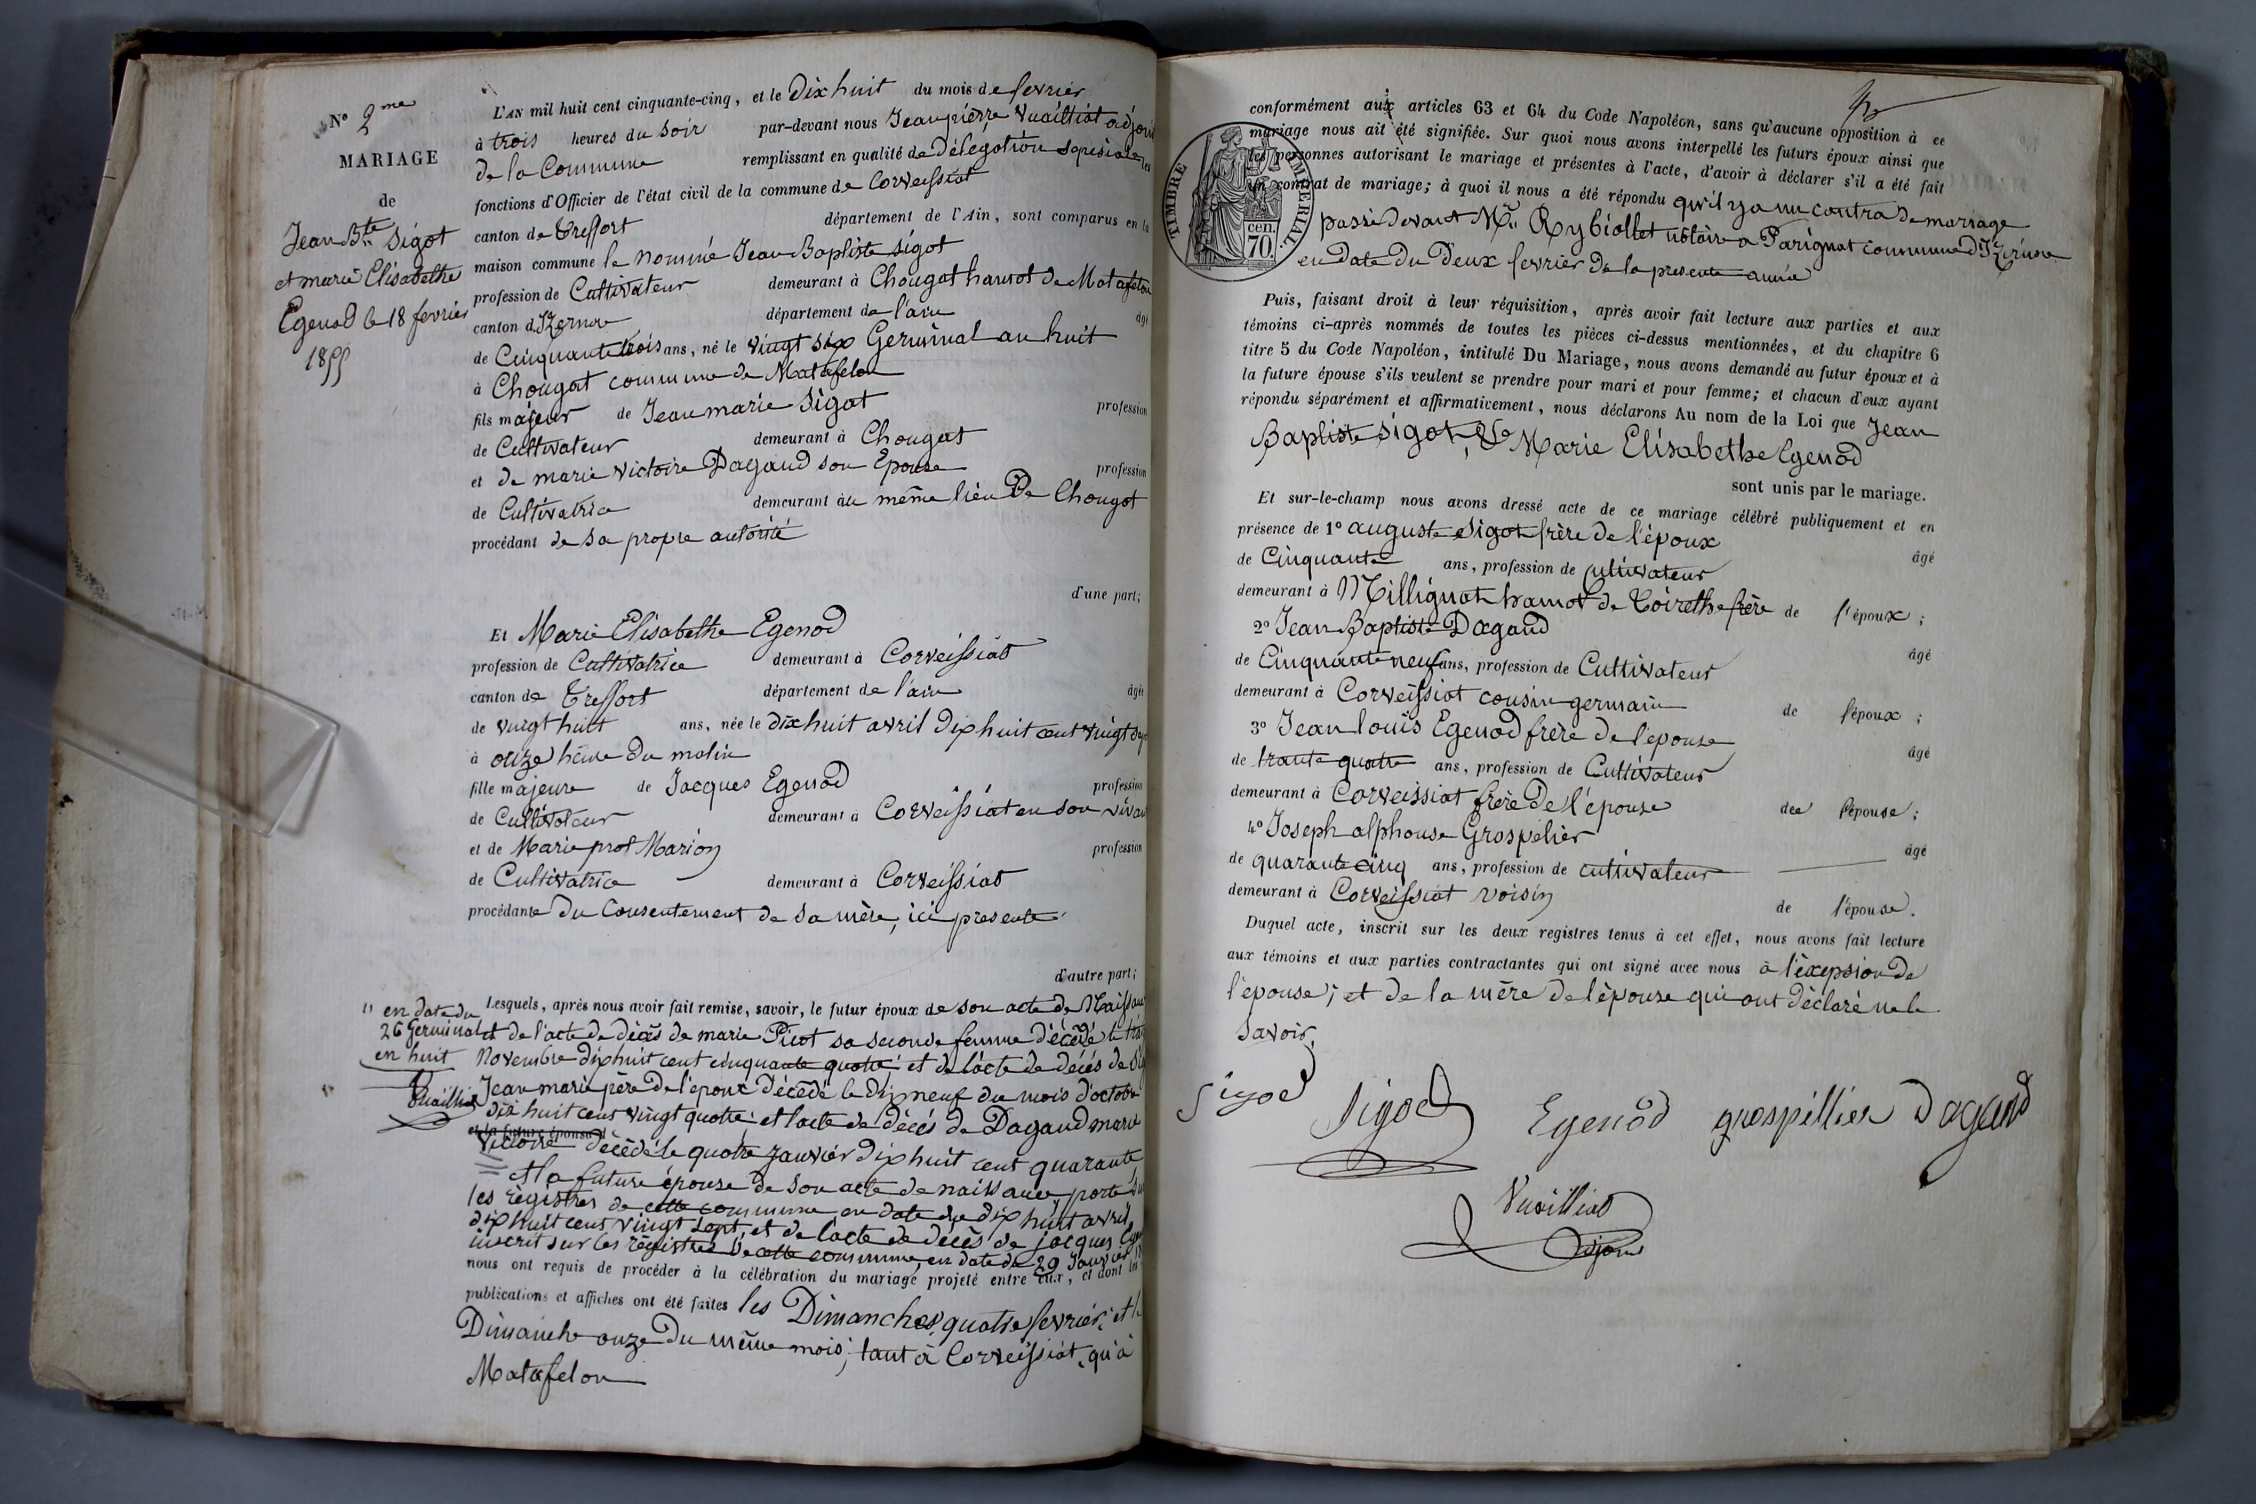 N° 2me
MARIAGE
de
Jean Bte Sigot
et marie Elisabethe
Egenod le 18 fevrier
1855
L'AN mil huit cent cinquante-cinq, et le Dix huit du mois de fevrier
à trois heures du Soir par-devant nous Jean pierre Vuailliat adjoint
de la Commune remplissant en qualité de Délégation
fonctions d'Officier de l'état civil de la commune de Corveissiat
canton de Treffort département de l'Ain, sont comparus en la
maison commune le nommé Jean Baptiste Sigot
profession de Cultivateur demeurant à Chougat hamot de Matafelon
canton d'Izernore département de l'ain âgé
de Cinquante trois ans, né le vingt six Germinal an huit
à Chougat commune de Matafelon
fils majeur de Jean marie Sigot profession
de Cultivateur demeurant à Chougat
et de marie victoire Dagaud son Epouse profession
de Cultivatrice demeurant au même lieu De Chougat
procédant de sa propre autorité
d'une part;
Et Marie Elisabethe Egenod
profession de Cultivatrice demeurant à Corveissiat
canton de Treffort département de l'ain âgée
de vingt huit ans, née le dix huit avril dix huit cent vingt sept
à onze heure du matin
fille majeure de Jacques Egenod profession
de Cultivateur demeurant à Corveissiat en son vivant
et de Marie prot Marion profession
de Cultivatrice demeurant à Corveissiat
procédante du Consentement de sa mère, ici presente
d'autre part;
en date du
26 Germinal
en huit
Vuailliat
Lesquels, après nous avoir fait remise, savoir, le futur époux de son acte de Naissance
et de l'acte de décés de marie Picot sa seconde femme décédé le
Novembre dix huit cent cinquante quatre; et de l'acte de décés de
Jean marie père de l'epoux décédé le dix neuf du mois d'octobre
dix huit cent vingt quatre; et l'acte de décés de Dagaud marie
et la future épouse
victoire décédé le quatre janvier dix huit cent quarante
et la future épouse de son acte de naissance, porté sur
les règistres de cette commune en date du dix huit avril
dix huit cent vingt sept, et de l'acte de décès de jacques
inscrit sur les règistres de cette commune, en date du 29 Janvier
nous ont requis de procéder à la célébration du mariage projeté entre eux, et dont les
publications et affiches ont été faites les Dimanches, quatre fevrier; et le
Dimanche onze du même mois; tant à Corveissiat, qu'à
Matafelon
conformément aux articles 63 et 64 du Code Napoléon, sans qu'aucune opposition à ce
mariage nous ait été signifiée. Sur quoi nous avons interpellé les futurs époux ainsi que
les personnes autorisant le mariage et présentes à l'acte, d'avoir à déclarer s'il a été fait
un contrat de mariage; à quoi il nous a été répondu qu'il y a un contra de mariage
TIMBRE IMPÉRIAL
70 cen.
passé devant Mtre Rybiollet notaire a Parignat commune d'Izernore
en date du Deux fevrier de la presente année
Puis, faisant droit à leur réquisition, après avoir fait lecture aux parties et aux
témoins ci-après nommés de toutes les pièces ci-dessus mentionnées, et du chapitre 6
titre 5 du Code Napoléon, intitulé Du Mariage, nous avons demandé au futur époux et à
la future épouse s'ils veulent se prendre pour mari et pour femme; et chacun d'eux ayant
répondu séparément et affirmativement, nous déclarons Au nom de la Loi que Jean
Baptiste Sigot, & Marie Elisabethe Egenod
sont unis par le mariage.
Et sur-le-champ nous avons dressé acte de ce mariage célébré publiquement et en
présence de 1° auguste Sigot frère de l'époux âgé
de Cinquante ans, profession de cultivateur
demeurant à Millignat hamot de Coirethe frère de l'époux;
2° Jean Baptiste Dagaud âgé
de Cinquante neuf ans, profession de Cultivateur
demeurant à Corveissiat cousin germain de l'époux;
3° Jean louis Egenod frère de l'epouse âgé
de trante quatre ans, profession de Cultivateur
demeurant à Corveissiat frère de l'épouse de l'épouse;
4° Joseph alphonse Grospelier âgé
de quarante cinq ans, profession de cultivateur
demeurant à Corveissiat voisin de l'épouse.
Duquel acte, inscrit sur les deux registres tenus à cet effet, nous avons fait lecture
aux témoins et aux parties contractantes qui ont signé avec nous à l'èxcepsion de
l'epouse; et de la mère de l'èpouse qui ont déclaré ne le
savoir.
Sigod Sigod Egenod grospillier Dagaud
Vuailliat
adjoint